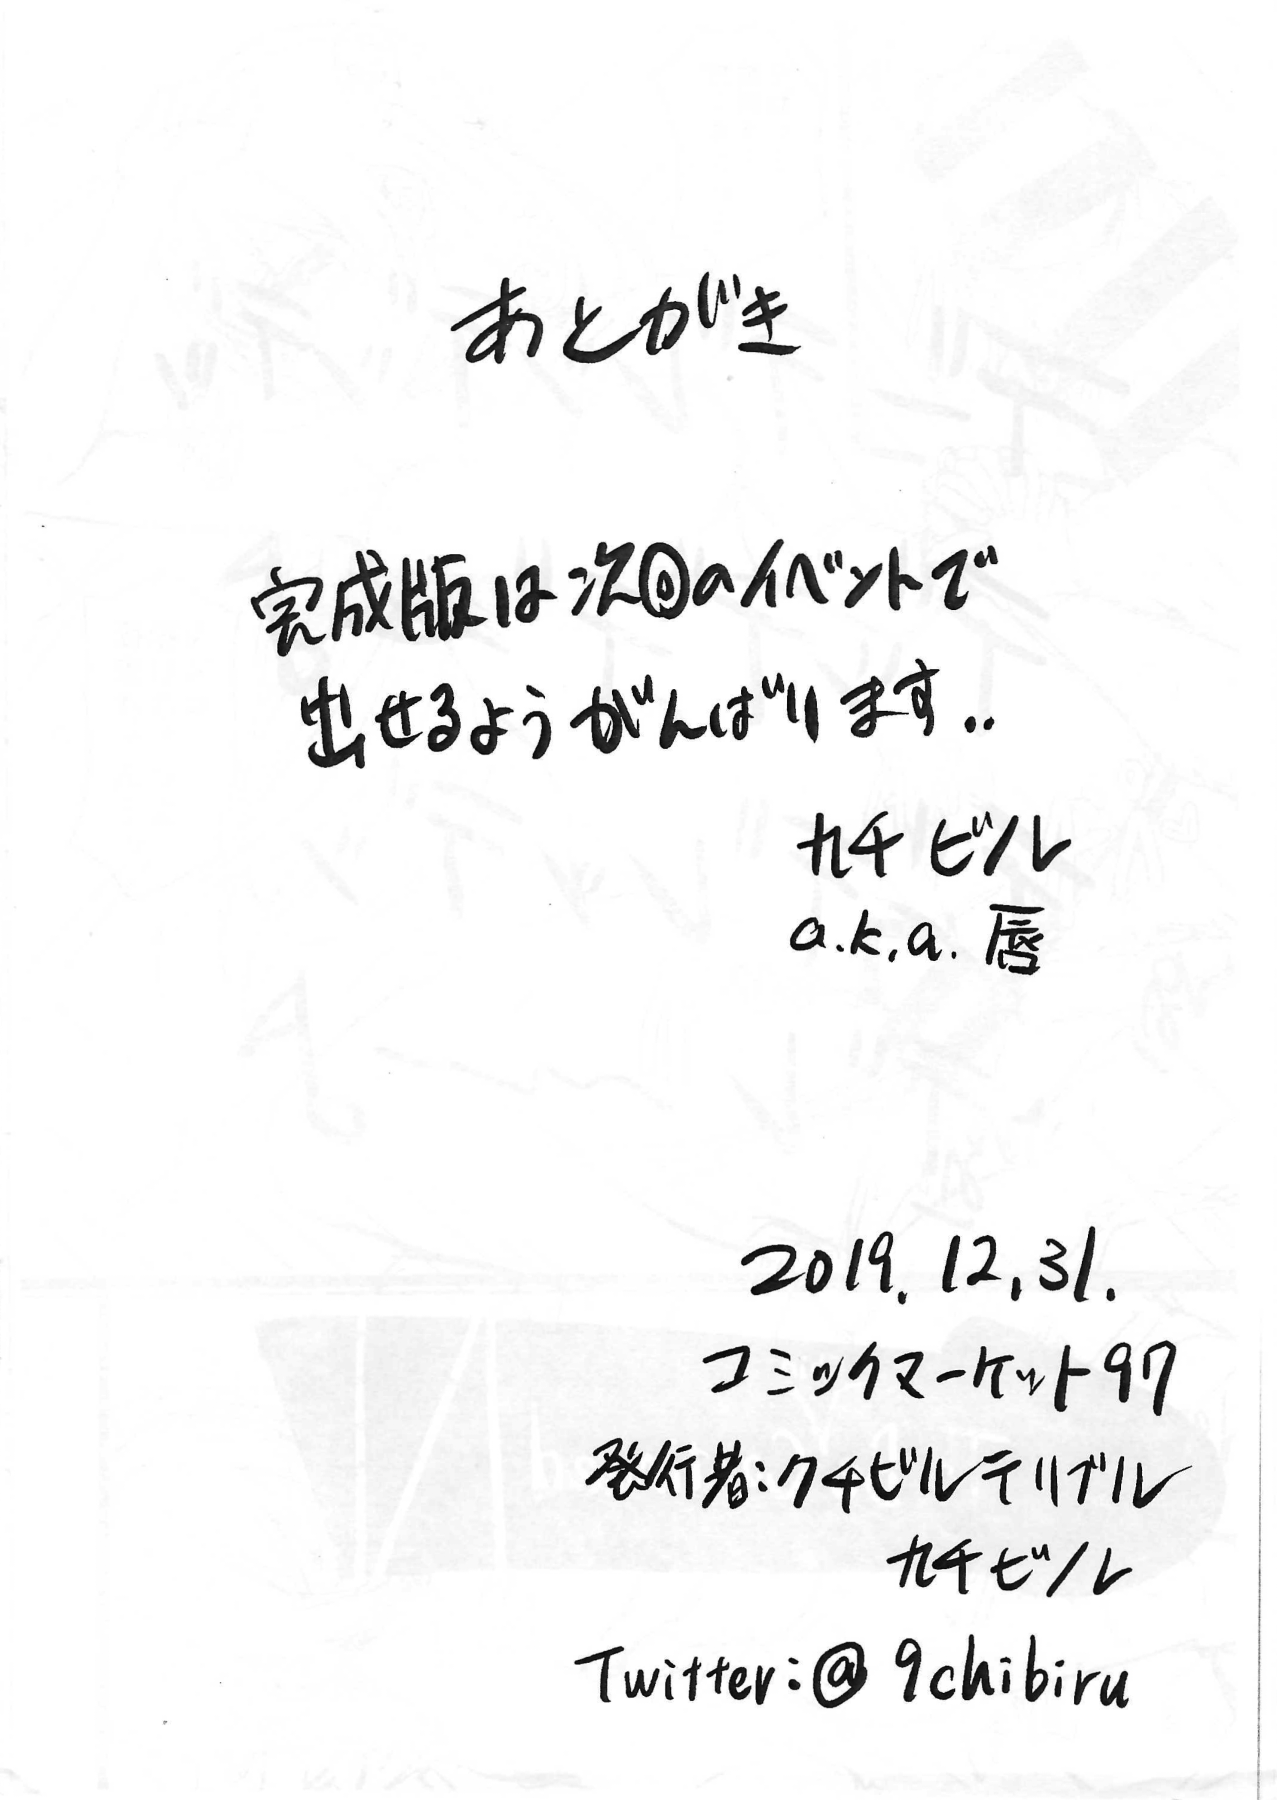 あとがき
完成版は次回のイベントで
出せるようがんばります..
九チビル
a.k.a. 唇
2019.12.31.
コミックマーケット97
発行者:クチビルテリブル
九チビル
Twitter:@9chibiru